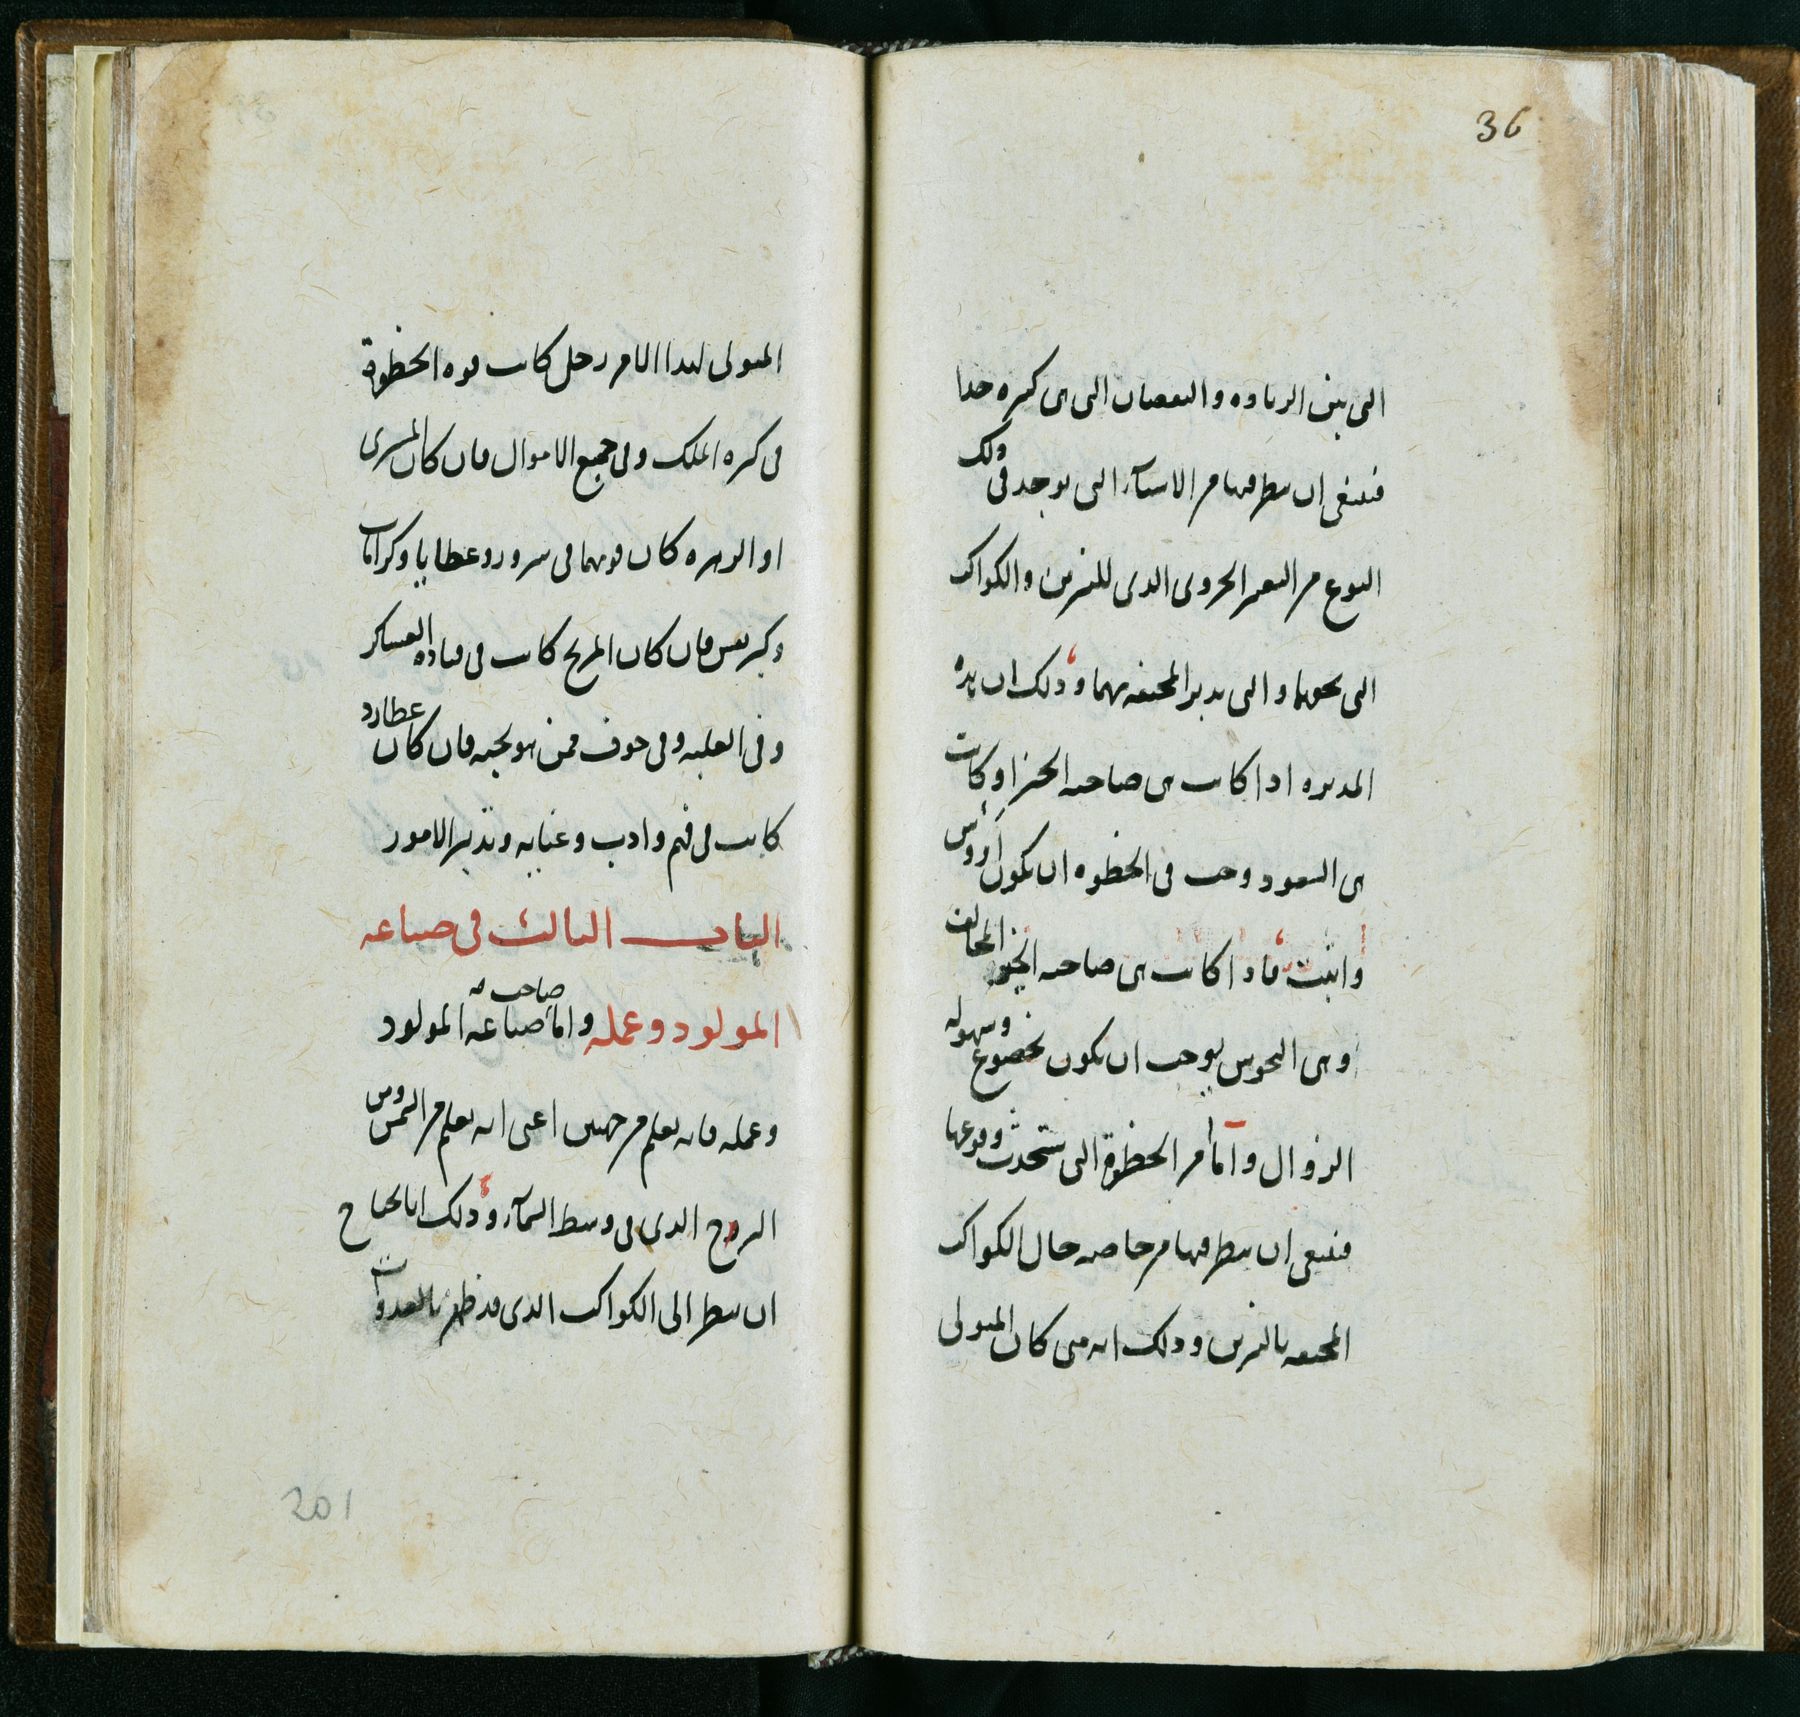 36
التى بين الزيادة والنقصان التى هى كثيرة جدا
فينبغى ان ينظر فيها من الاشياء التى توجد فى ذلك
النوع من التغير الجزوى الذى للنيرين والكواكب
التى نحوهما والى تدبير المحتفة بهما وذلك ان هذه
المدبرة اذا كانت هى صاحبة الحيز او كانت
هى السعود وجب فى الحظوة ان يكون اروس
واثبت فاذا كانت هى صاحبة الحيز المخالف
وهى النحوس يوجب ان يكون بخضوع وسهولة
الزوال وأما أمر الحظوة التى ستحدث وقوعها
فينبغى ان ينظر فيها من خاصة حال الكواكب
المحتفة بالنيرين وذلك انه متى كان المتولى
المتولى لهذا الامر زحل كانت قوة الحظوة
فى كثرة الملك وفى جميع الاموال فان كان المشترى
او الزهرة كان قوتهما فى سرور وعطايا وكرامات
وكبر نفس فان كان المريخ كانت فى قيادة العساكر
وفى الغلبة وفى خوف ممن هو تحته فان كان عطارد
كانت فى فهم وادب وعناية وتدبير الامور
الباب الثالث فى صناعة
المولود وعمله واما صاحب صناعة المولود
وعمله فانه يعلم من جهتين اعنى انه يعلم من الشمس ومن
البروج الذى فى وسط السماء وذلك انا نحتاج
ان ننظر الى الكواكب الذى قد ظهر بالغدوات
201